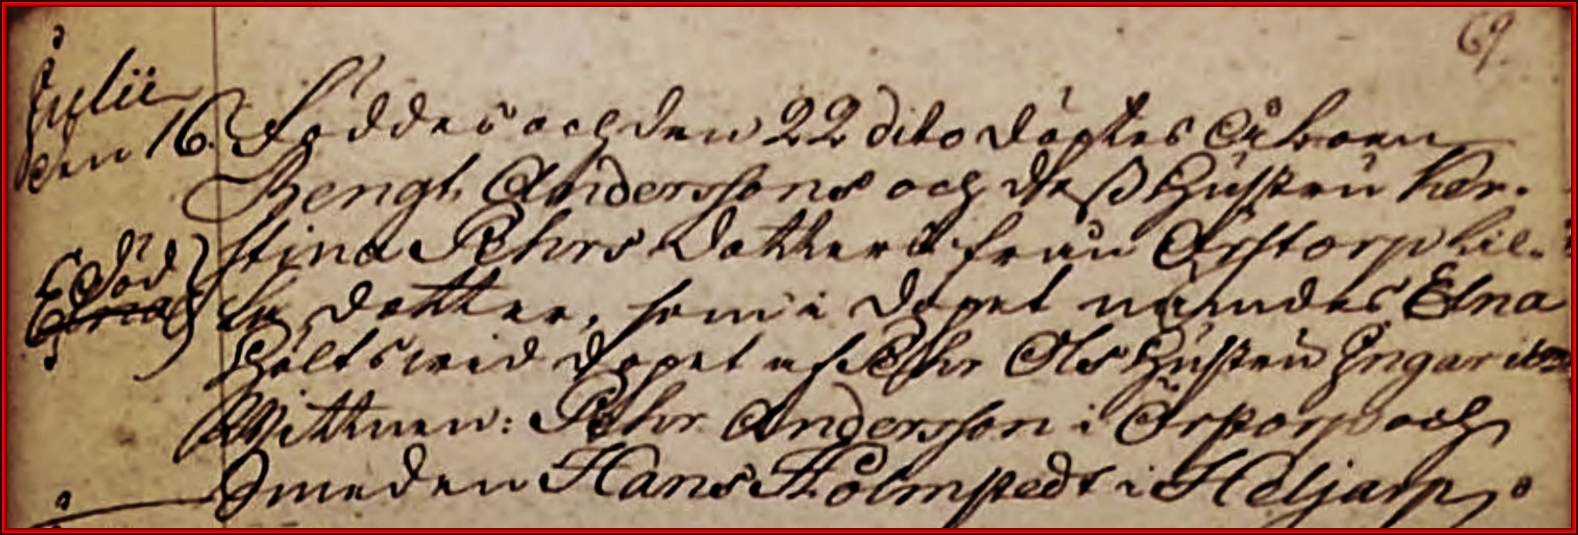 69
Julii
den 16. Föddes och den 22 dito döptes Åboen
Bengt Anderssons och dess Hustru Ker-
stina Pehrs dotters från Örstorp lil-
Död
Elna
la dotter, som i dopet nämdes Elna
Hölts wid dopet af Pehr Ols Hustru Ingar
Wittnen: Pehr Andersson i Örstorp och
Smeden Hans Holmstedt i Heljarp